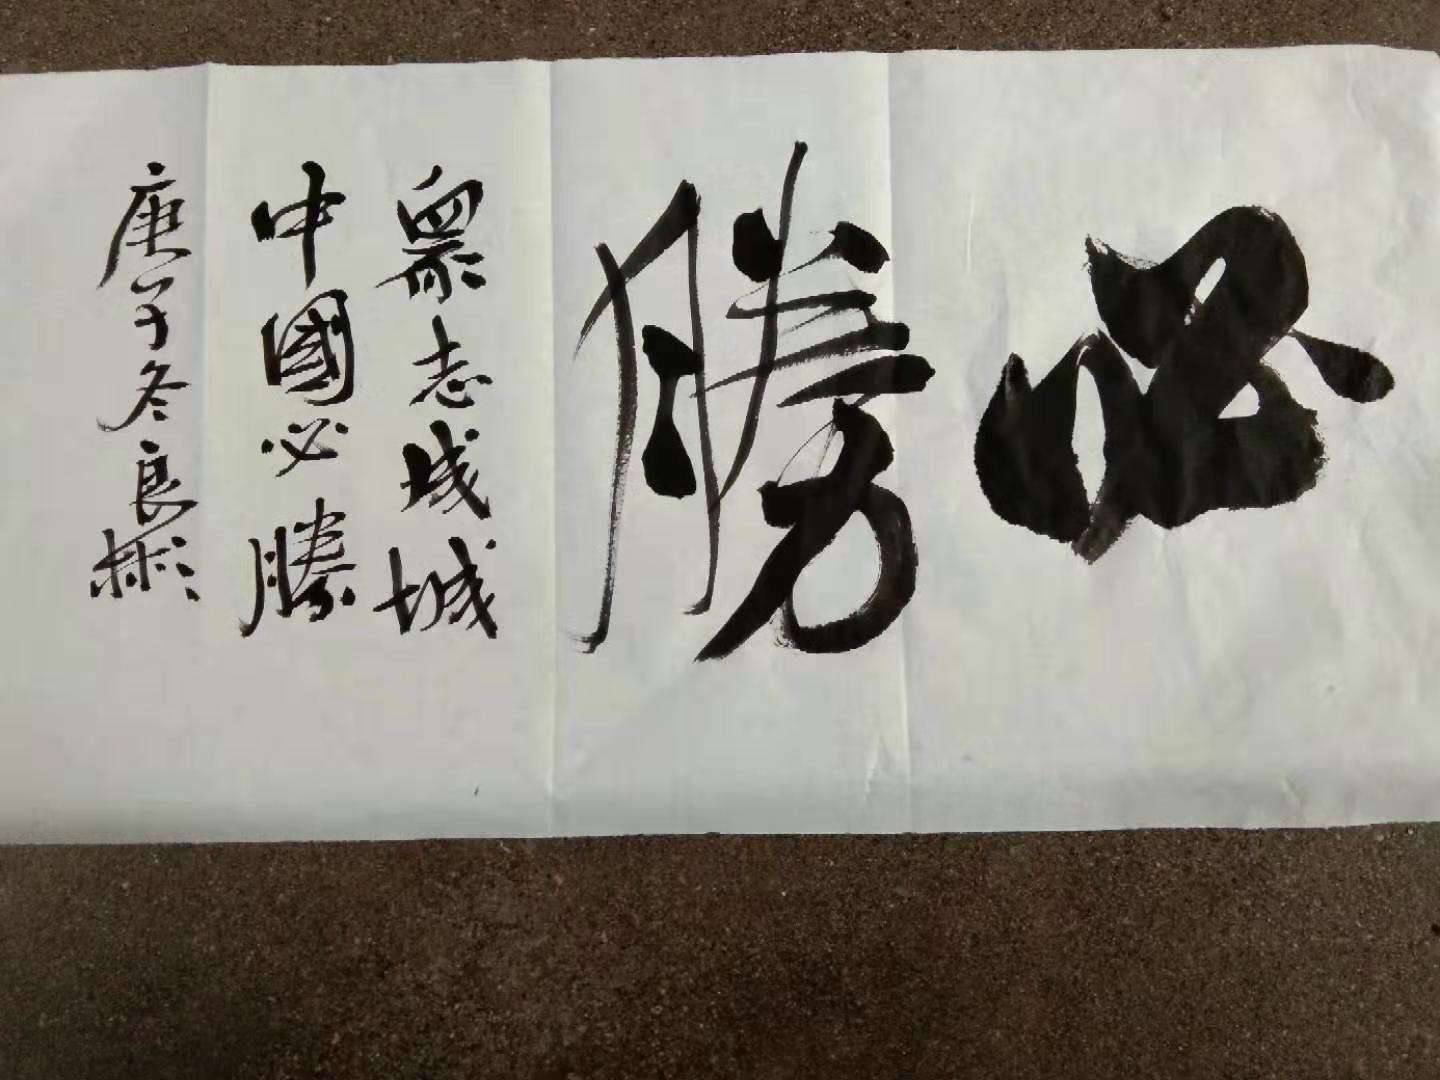 必勝
眾志成城
中國必勝
庚子冬良彬